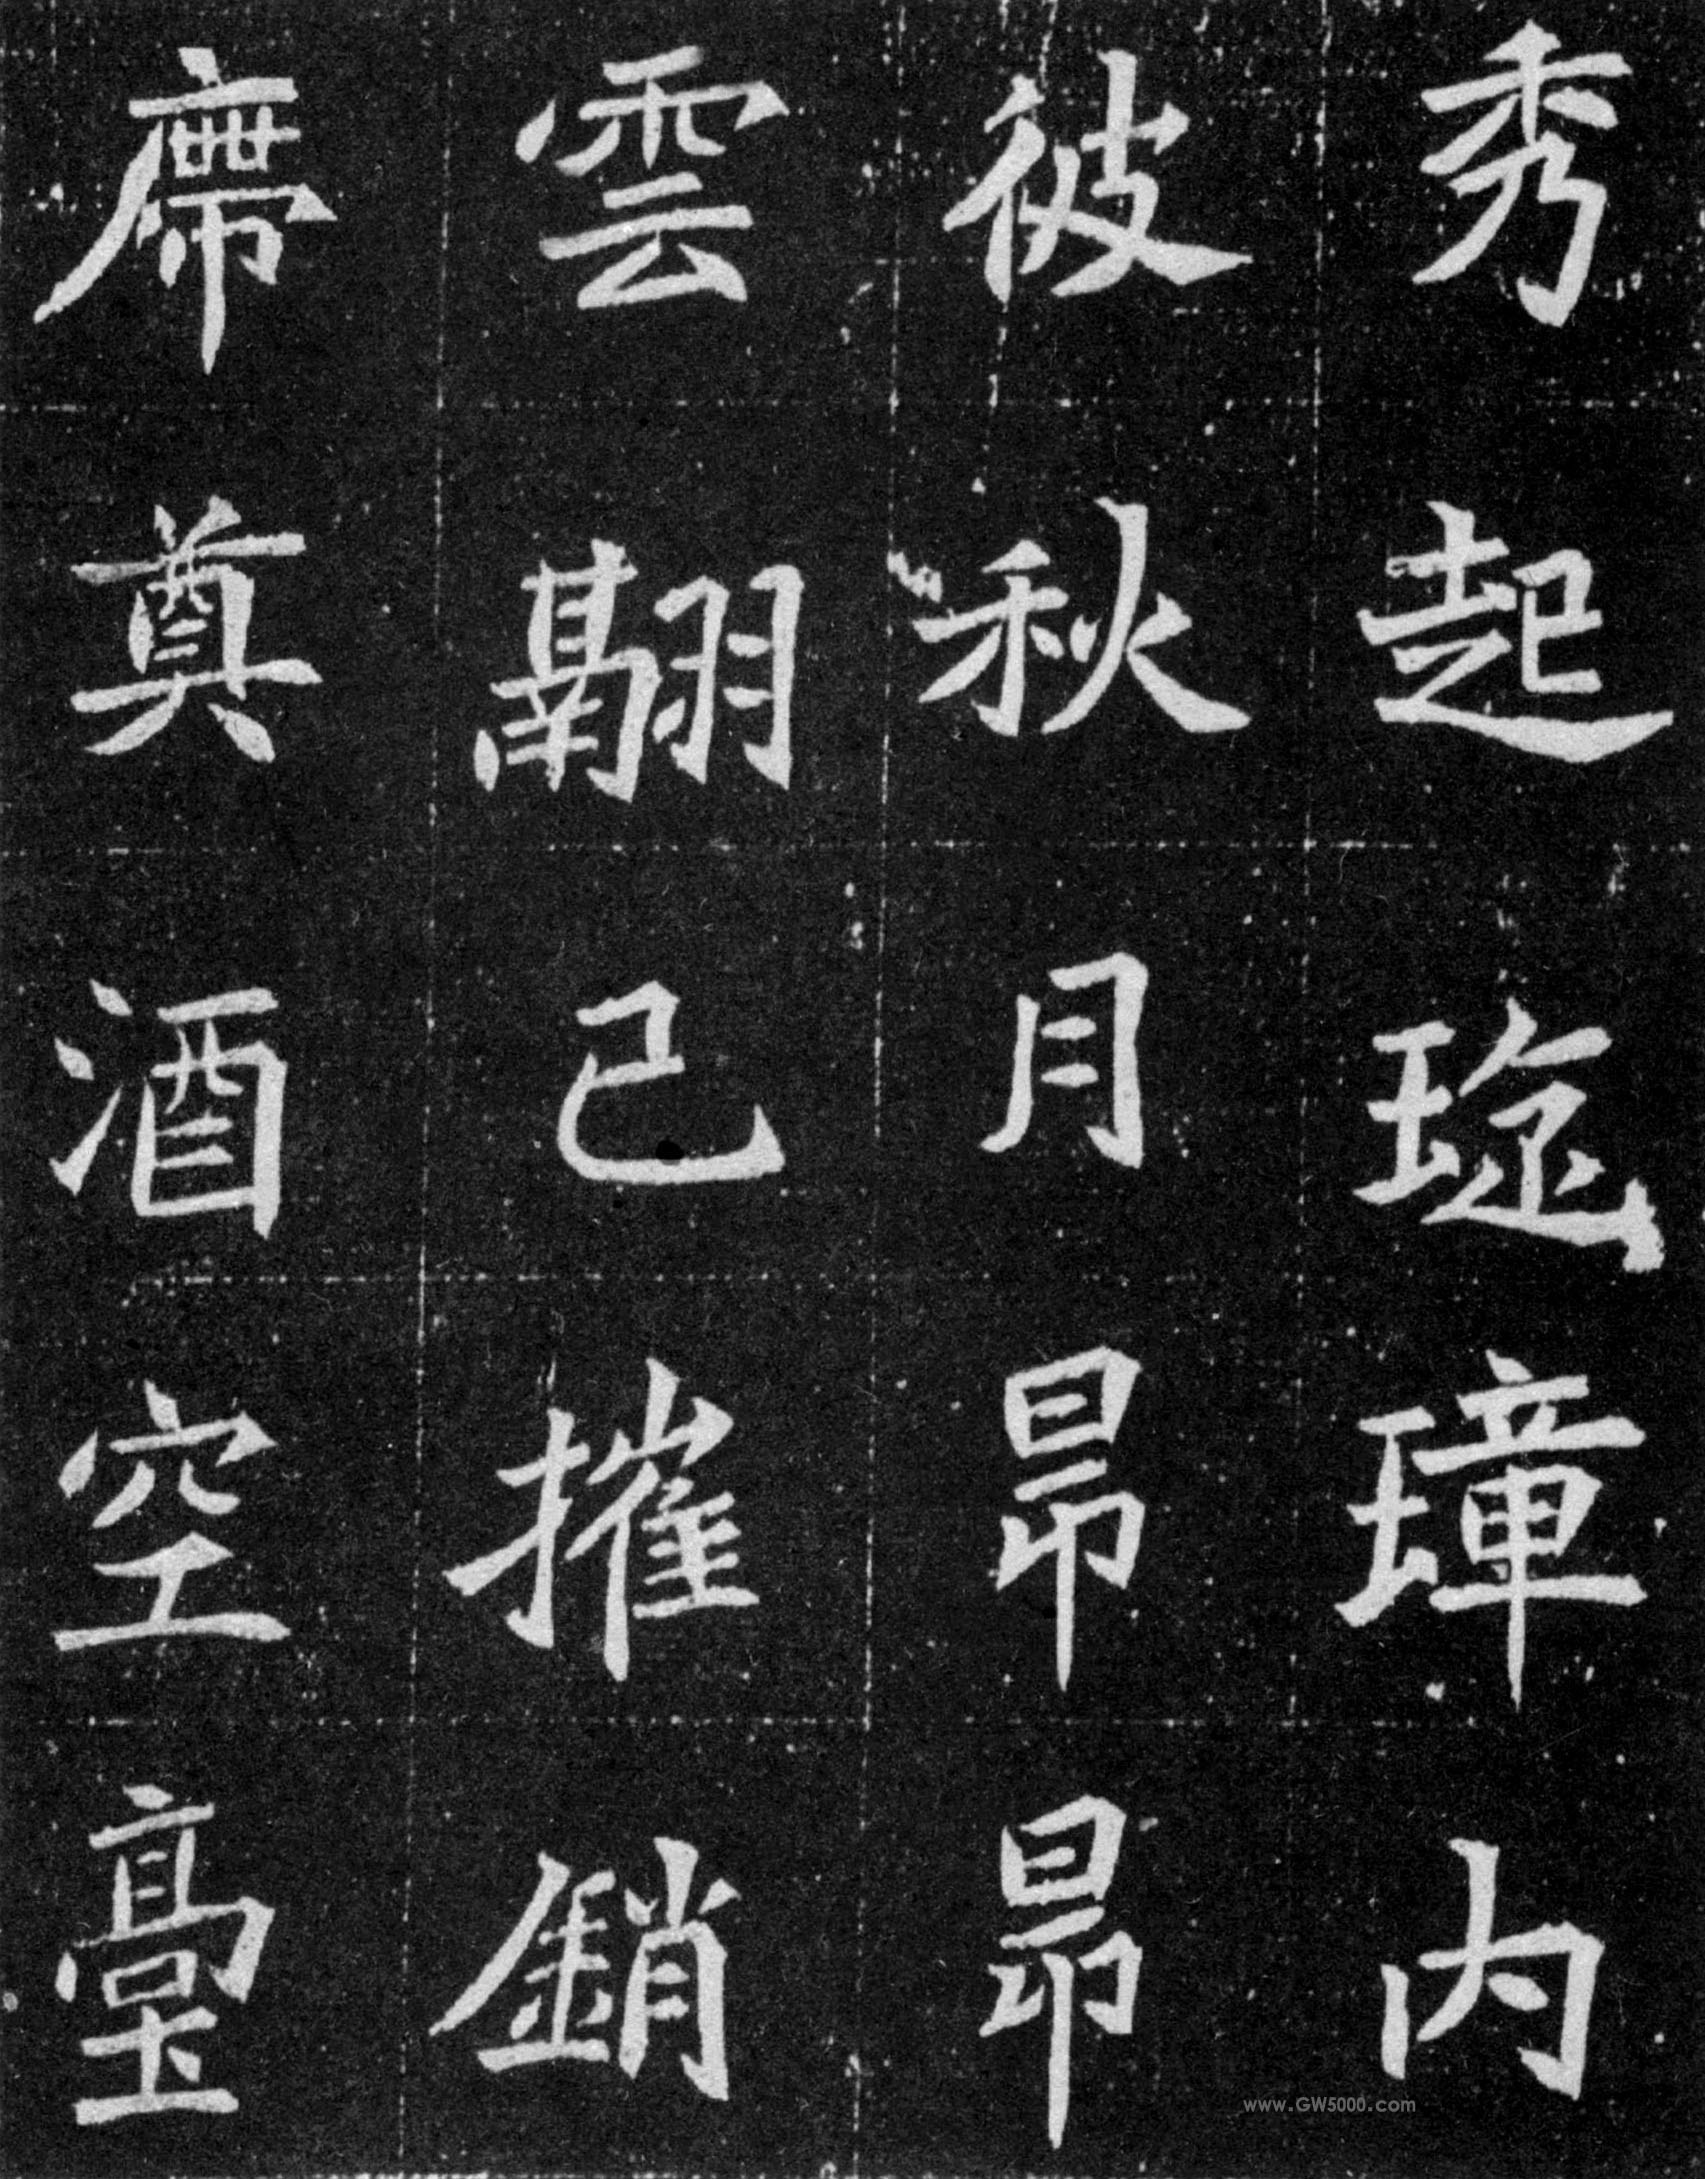 秀起琁璋内
彼秋月昂昂
雲翮已摧銷
席奠酒空臺
www.GW5000.com